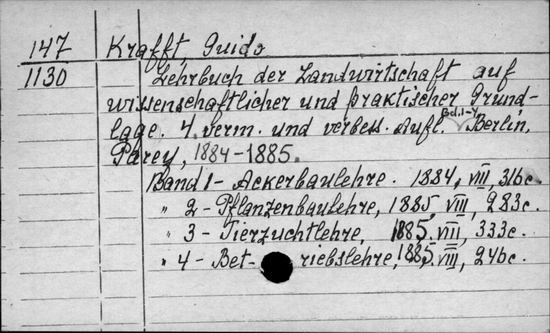 147 Krafft Guido
1130 Lehrbuch der Landwirtschaft auf
wissenschaftlicher und praktischer Grund-
lage. 4. verm. und verbess. Aufl. Bd.1-4 Berlin,
Parey, 1884-1885.
Band 1 - Ackerbaulehre. 1884, VIII, 316c.
" 2 - Pflanzenbaulehre, 1885, VIII, 283c.
" 3 - Tierzuchtlehre, 1885, VIII, 333c.
" 4 - Bet- riebslehre, 1885, VIII, 246c.